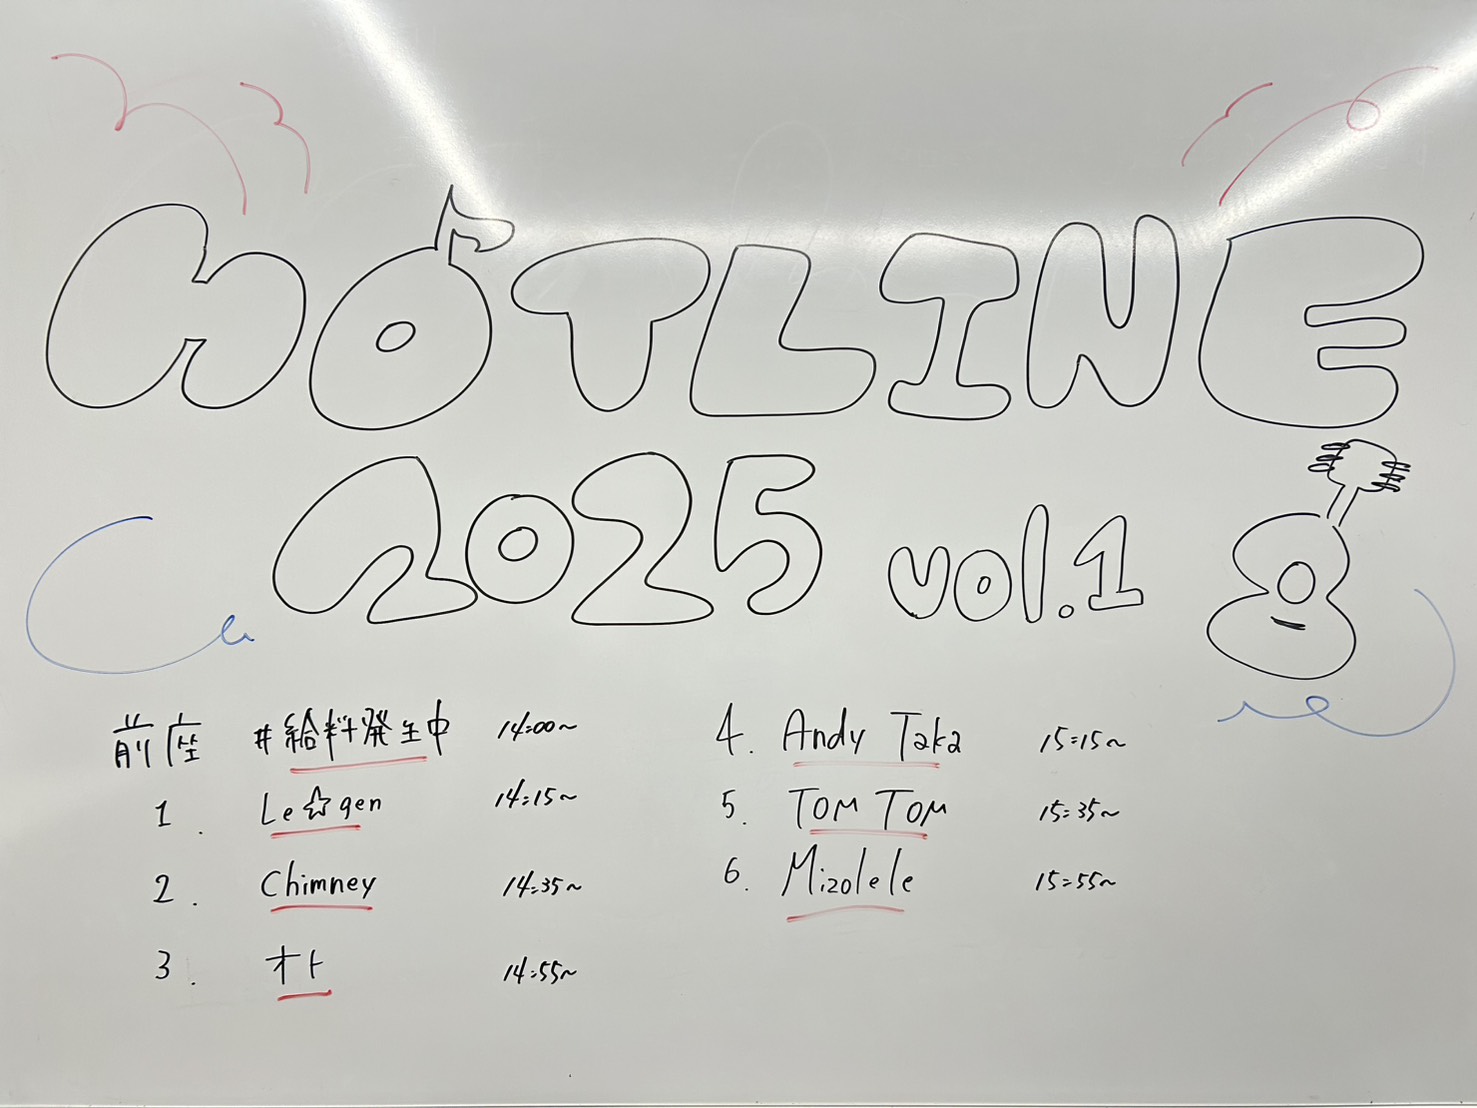 HOTLINE
2025 vol.1
前座 #給料発生中 14:00~
1. Le☆gen 14:15~
2. Chimney 14:35~
3. オト 14:55~
4. Andy Taka 15:15~
5. TOM TOM 15:35~
6. Mizolele 15:55~